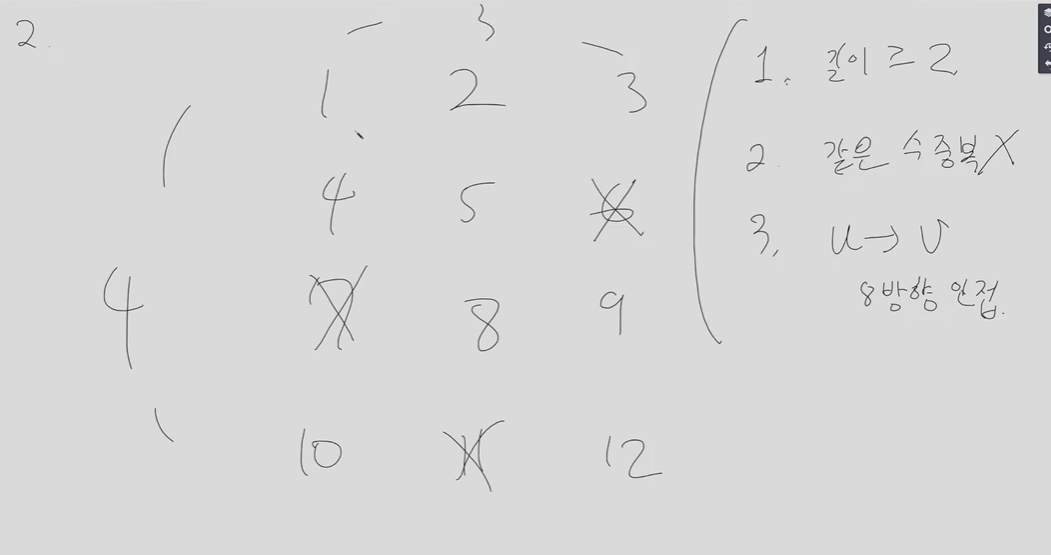 2.
3
1 2 3
4 5 6
4
7 8 9
10 11 12
1. 길이 ≥ 2
2. 같은 수 중복 X
3. u → v
8방향 인접.